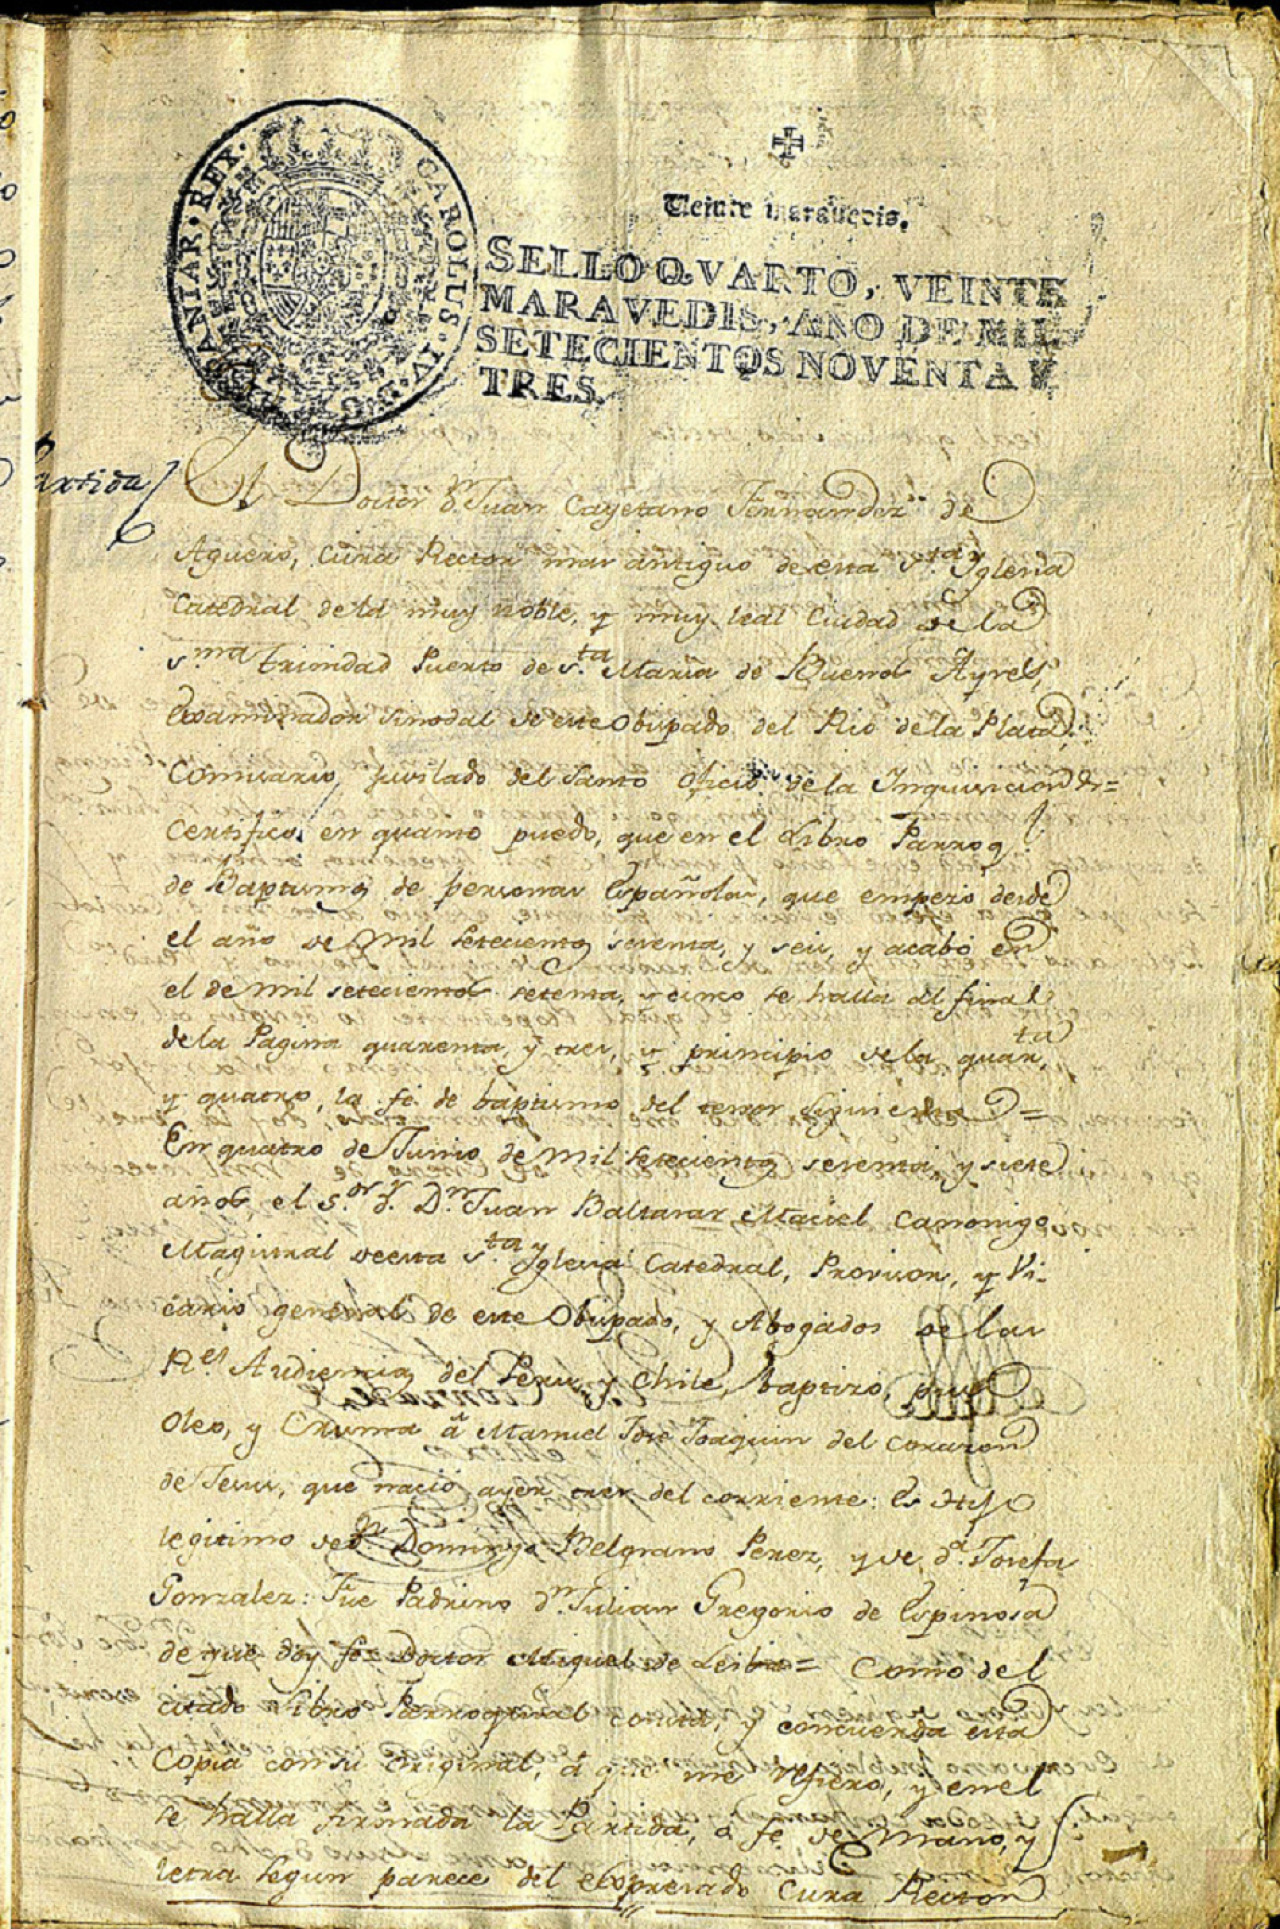 CAROLUS · IV · D · G · HISPANIAR · REX ·
Veinte maravedis.
SELLO QVARTO, VEINTE
MARAVEDIS, AÑO DE MIL
SETECIENTOS NOVENTA Y
TRES.
Partida
El Doctor Dn. Juan Cayetano Fernandez de
Aguero, Cura Rector mas antiguo de esta Sta. Yglesia
Catedral de la muy noble, y muy leal Ciudad de la
Sma. Trinidad Puerto de Sta. Maria de Buenos Ayres,
Examinador sinodal de este Obispado del Rio de la Plata,
Comisario, jubilado del Santo Oficio de la Inquisicion &=
Certifico en quanto puedo, que en el Libro Parroq
de Baptismos de personas Españolas, que empezo desde
el año de Mil setecientos setenta, y seis, y acabó en
el de mil setecientos setenta, y cinco se halla al final
de la Pagina quarenta, y tres, y principio de la quarta.
y quatro, la fé de baptismo del tenor siguiente =
En quatro de Junio de Mil setecientos setenta, y siete
años, el Sor. Dr. Dn. Juan Baltasar Maciel Canonigo
Magistral de esta Sta. Yglesia Catedral, Provisor, y Vi-
cario general de este Obispado, y Abogados de las
Rs. Audiencias del Peru, y Chile, baptizo, puso
Oleo, y Crisma á Manuel Jose Joaquin del corazon
de Jesus, que nació ayer tres del corriente: Es Hijo
legitimo de Dn. Domingo Belgrano Perez, y de Da. Josefa
Gonzalez: Fue Padrino Dn. Julian Gregorio de Espinosa
de que doy fe Doctor Miguel de Leiba = Como del
citado Libro Parroquial consta, y concuerda esta
Copia con su original, á que me refiero, y en el
se halla firmada la Partida, á fé de Mano, y
letra segun parece del expresado Cura Rector